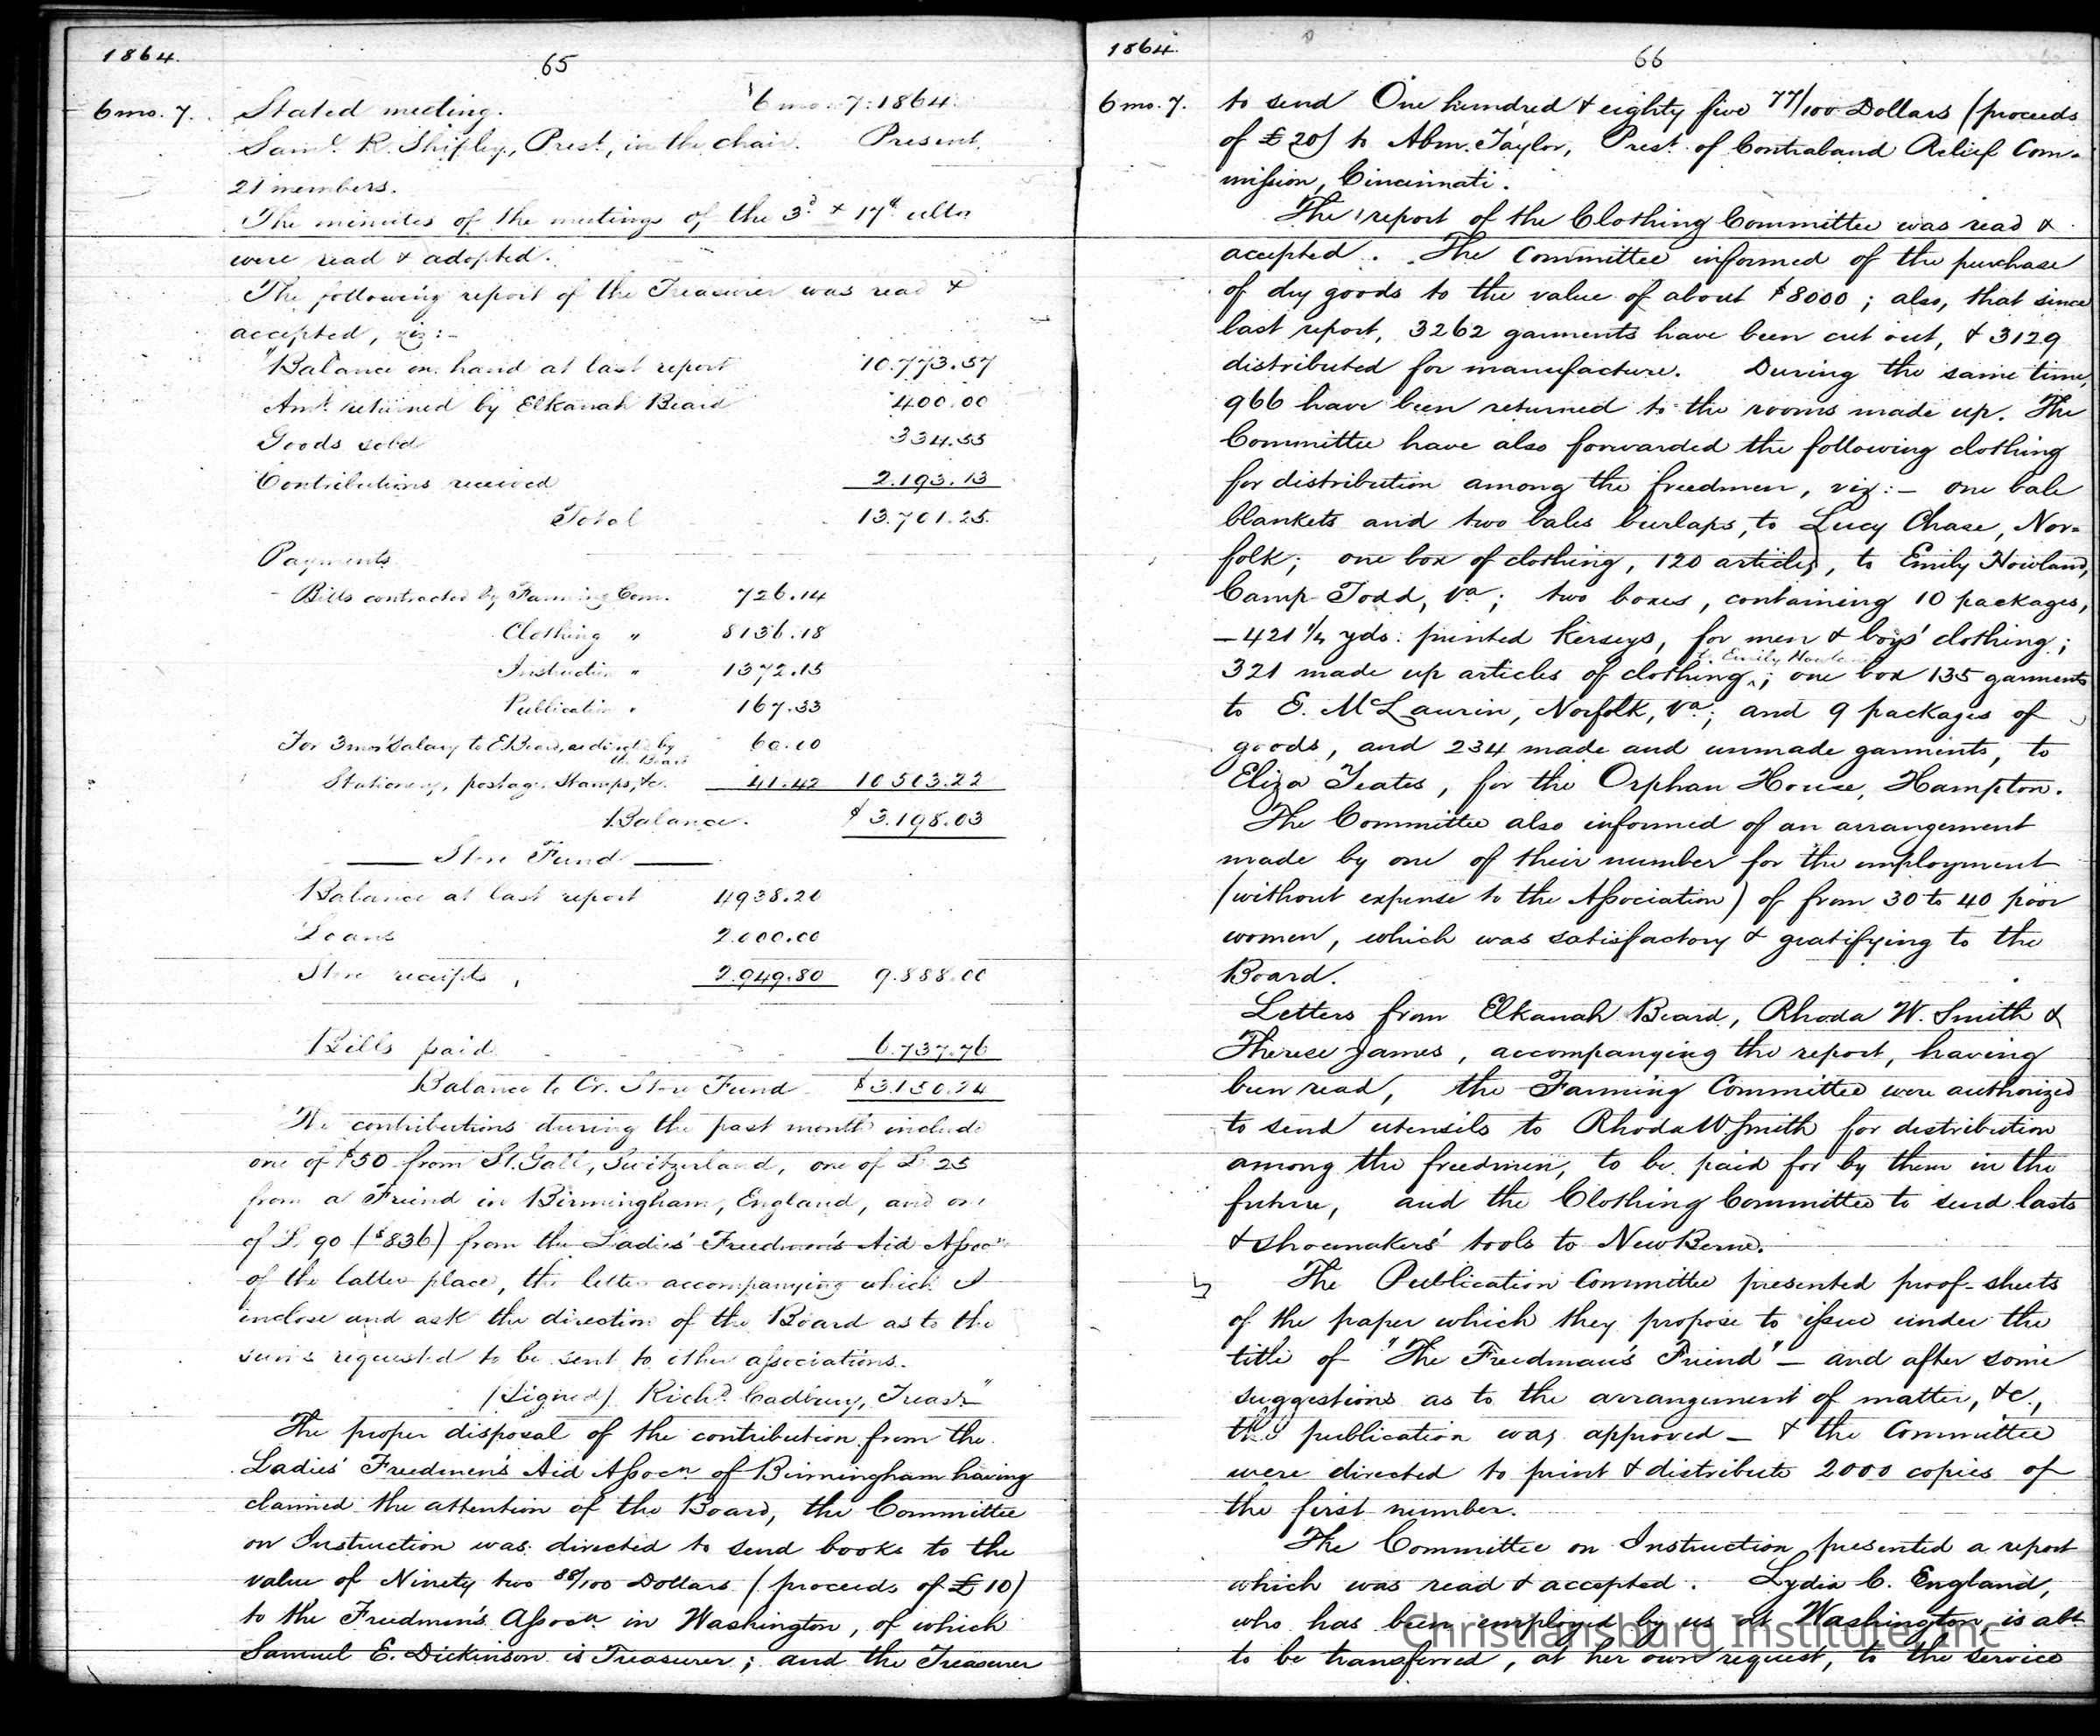 1864.
65
6 mo. 7.
Stated meeting. 6 mo. 7. 1864.
Saml. R. Shipley, Prest., in the chair. Present,
21 members.
The minutes of the meetings of the 3d. & 17th. ulto
were read & adopted.
The following report of the Treasurer was read &
accepted, viz:-
"Balance on hand at last report 10.773.57
Amt. returned by Elkanah Beard 400.00
Goods sold 334.55
Contributions received 2.193.13
Total 13.701.25.
Payments
Bills contracted by Farming Com. 726.14
Clothing " 8136.18
Instruction " 1372.15
Publication " 167.33
For 3 mos' Salary to E Beard, as directed by the Board 60.00
Stationery, postage Stamps, &c. 41.42 10503.22
Balance. $3.198.03
Store Fund
Balance at last report 4938.20
Loans 2.000.00
Store receipts, 2.949.80 9.888.00
Bills paid 6.737.76
Balance to Cr. Store Fund $3.150.24
The contributions during the past month include
one of $50 from St. Gall, Switzerland, one of £25
from a Friend in Birmingham, England, and one
of £90 ($836) from the Ladies' Freedmen's Aid Assocn
of the latter place, the letter accompanying which I
inclose and ask the direction of the Board as to the
sums requested to be sent to other associations.
(Signed) Richd. Cadbury, Treasr"
The proper disposal of the contribution from the
Ladies' Freedmen's Aid Assocn of Birmingham having
claimed the attention of the Board, the Committee
on Instruction was directed to send books to the
value of Ninety two 88/100 Dollars (proceeds of £10)
to the Freedmen's Assocn in Washington, of which
Samuel E. Dickinson is Treasurer; and the Treasurer
1864.
66
6 mo. 7.
to send One hundred & eighty five 77/100 Dollars (proceeds
of £20) to Abm. Taylor, Prest. of Contraband Relief Com-
mission, Cincinnati.
The report of the Clothing Committee was read &
accepted. The Committee informed of the purchase
of dry goods to the value of about $8000; also, that since
last report, 3262 garments have been cut out, & 3129
distributed for manufacture. During the same time,
966 have been returned to the rooms made up. The
Committee have also forwarded the following clothing
for distribution among the freedmen, viz:- one bale
blankets and two bales burlaps, to Lucy Chase, Nor-
folk; one box of clothing, 120 articles, to Emily Howland,
Camp Todd, Va; two boxes, containing 10 packages,
-421 1/4 yds. printed Kerseys, for men & boys' clothing;
321 made up articles of clothing, to Emily Howland; one box 135 garments
to E. McLaurin, Norfolk, Va; and 9 packages of
goods, and 234 made and unmade garments, to
Eliza Yeates, for the Orphan House, Hampton.
The Committee also informed of an arrangement
made by one of their number for the employment
(without expense to the Association) of from 30 to 40 poor
women, which was satisfactory & gratifying to the
Board.
Letters from Elkanah Beard, Rhoda W. Smith &
Therese James, accompanying the report, having
been read, the Farming Committee were authorized
to send utensils to Rhoda W Smith for distribution
among the freedmen, to be paid for by them in the
future, and the Clothing Committee to send lasts
& shoemakers' tools to New Berne.
The Publication Committee presented proof-sheets
of the paper which they propose to issue under the
title of "The Freedman's Friend" - and after some
suggestions as to the arrangement of matter, &c.,
the publication was approved - & the Committee
were directed to print & distribute 2000 copies of
the first number.
The Committee on Instruction presented a report
which was read & accepted. Lydia C. England,
who has been employed by us at Washington, is abt.
to be transferred, at her own request, to the service
Christiansburg Institute, Inc